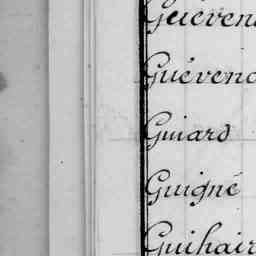 Guevenc
Guévenc
Guiard
Guigné
Guihair